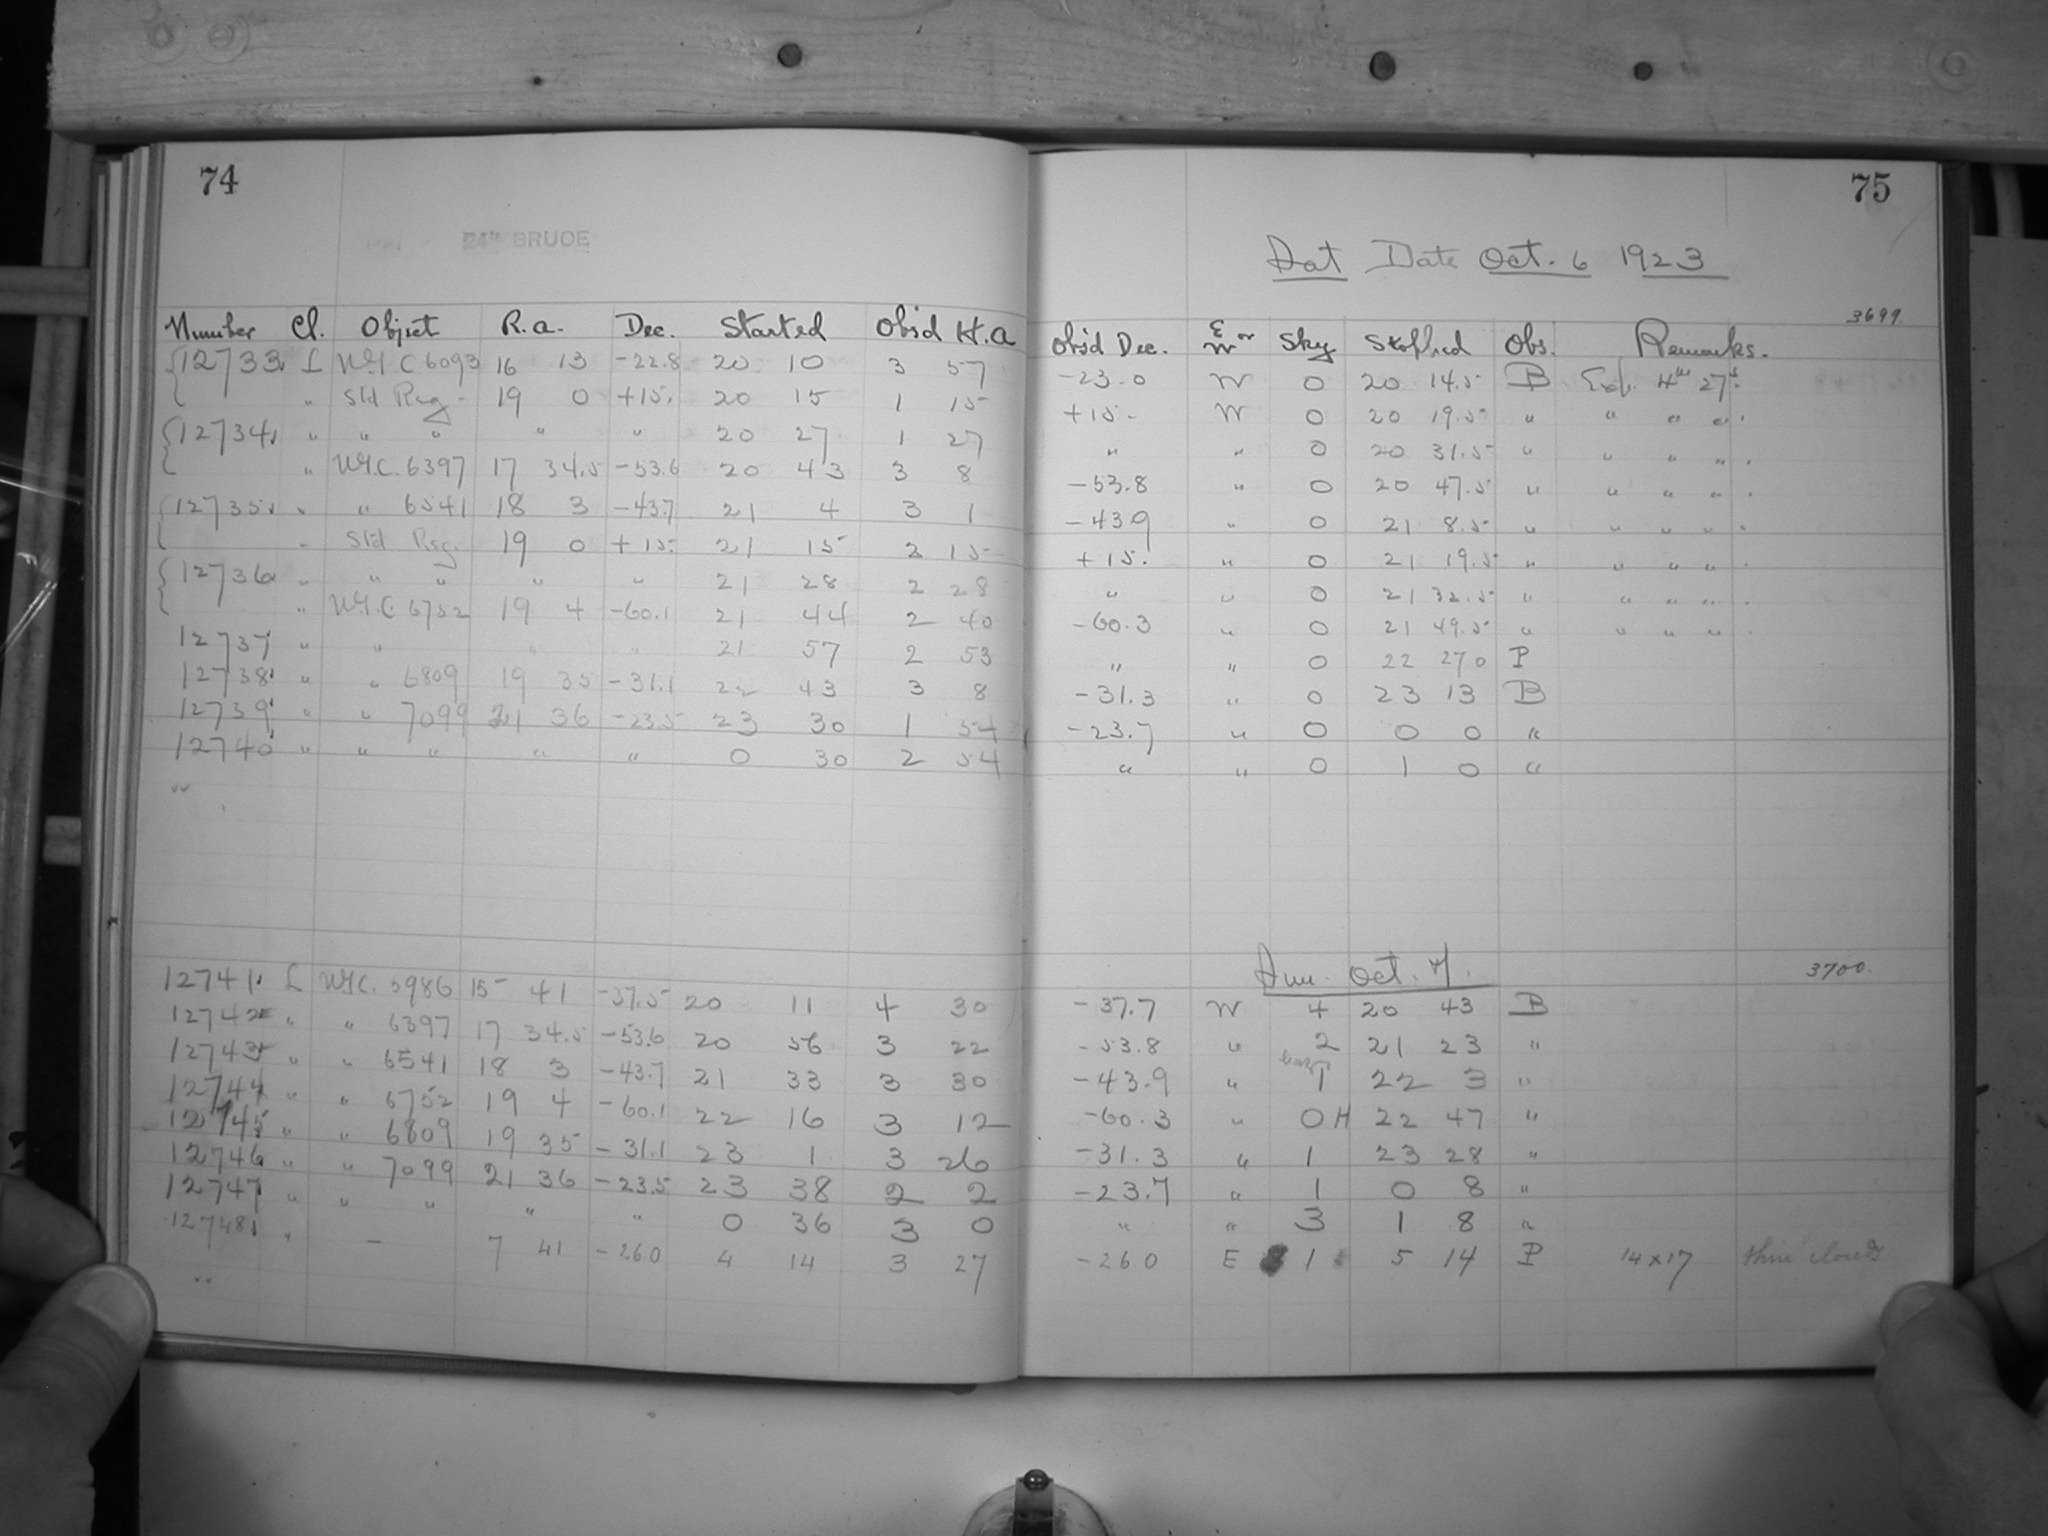 74
24" BRUCE
Number Cl. Object R.a. Dec. Started Obsd H.a
12733 L N.G.C 6093 16 13 -22.8 20 10 3 57
" Std Reg. 19 0 +15. 20 15 1 15
12734 " " " " " 20 27 1 27
" N.G.C. 6397 17 34.5 -53.6 20 43 3 8
12735 " " 6541 18 3 -43.7 21 4 3 1
" Std Reg. 19 0 +15. 21 15 2 15
12736 " " " " " 21 28 2 28
" N.G.C. 6752 19 4 -60.1 21 44 2 40
12737 " " " " 21 57 2 53
12738 " " 6809 19 35 -31.1 22 43 3 8
12739 " " 7099 21 36 -23.5 23 30 1 54
12740 " " " " " 0 30 2 54
"
12741 L N.G.C. 5986 15 41 -37.5 20 11 4 30
12742 " " 6397 17 34.5 -53.6 20 56 3 22
12743 " " 6541 18 3 -43.7 21 33 3 30
12744 " " 6752 19 4 -60.1 22 16 3 12
12745 " " 6809 19 35 -31.1 23 1 3 26
12746 " " 7099 21 36 -23.5 23 38 2 2
12747 " " " " " 0 36 3 0
12748 " - 7 41 -26.0 4 14 3 27
"
75
Sat Date Oct. 6 1923
3699
Obsd Dec. E or W Sky Stopped Obs. Remarks.
-23.0 W 0 20 14.5 B Exp. 4m 27s.
+15. W 0 20 19.5 " " " "
" " 0 20 31.5 " " " "
-53.8 " 0 20 47.5 " " " "
-43.9 " 0 21 8.5 " " " "
+15. " 0 21 19.5 " " " "
" " 0 21 32.5 " " " "
-60.3 " 0 21 49.5 " " " "
" " 0 22 27 0 P
-31.3 " 0 23 13 B
-23.7 " 0 0 0 "
" " 0 1 0 "
Sun. Oct. 7. 3700.
-37.7 W 4 20 43 B
-53.8 " 2 21 23 "
-43.9 " 1 22 3 "
-60.3 " 0H 22 47 "
-31.3 " 1 23 28 "
-23.7 " 1 0 8 "
" " 3 1 8 "
-26.0 E 1 5 14 P 14x17 thin clouds